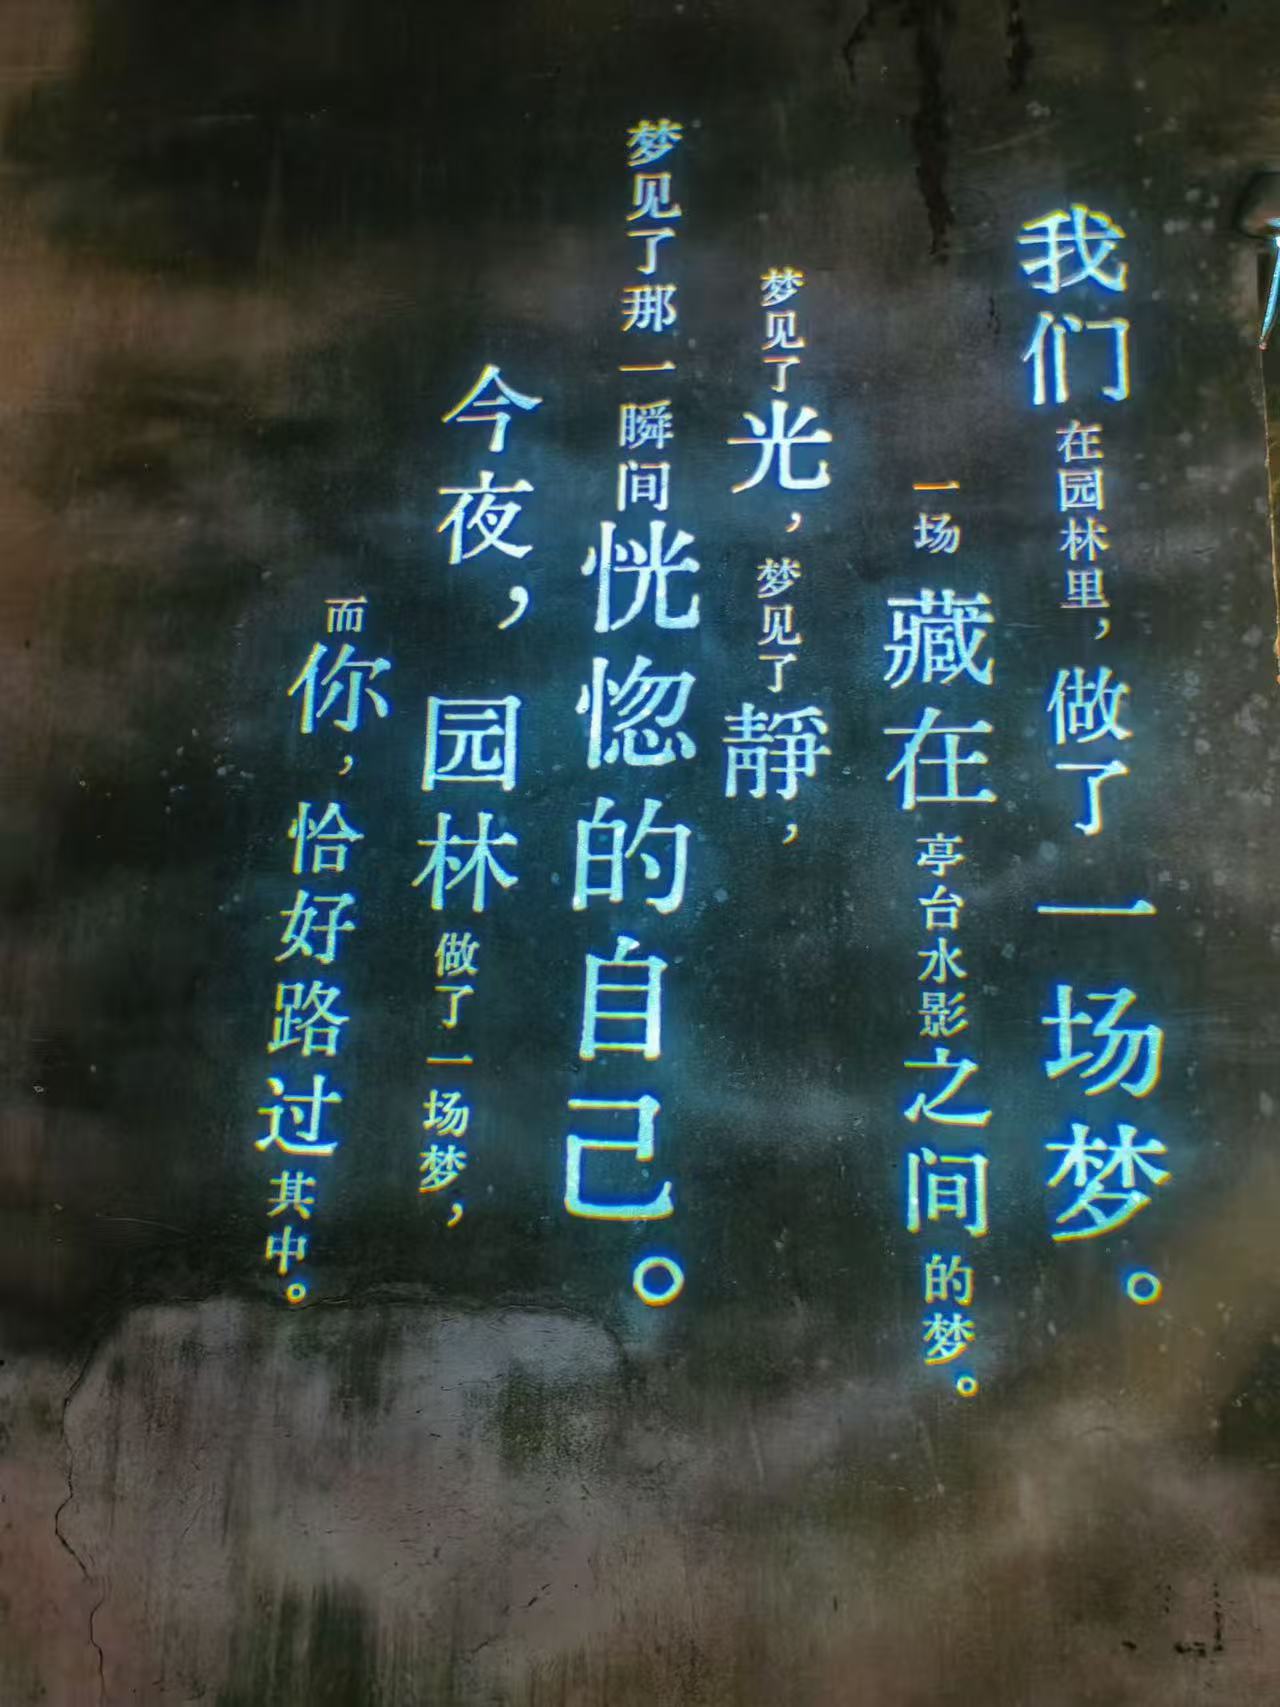 我们在园林里，做了一场梦。
一场藏在亭台水影之间的梦。
梦见了光，梦见了靜，
梦见了那一瞬间恍惚的自己。
今夜，园林做了一场梦，
而你，恰好路过其中。